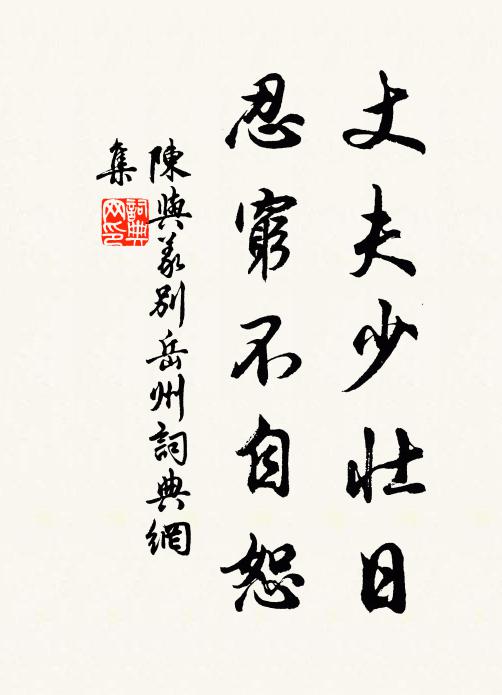 丈夫少壯日
忍窮不自恕
陳與義別岳州詞典網
集
詞典
网印